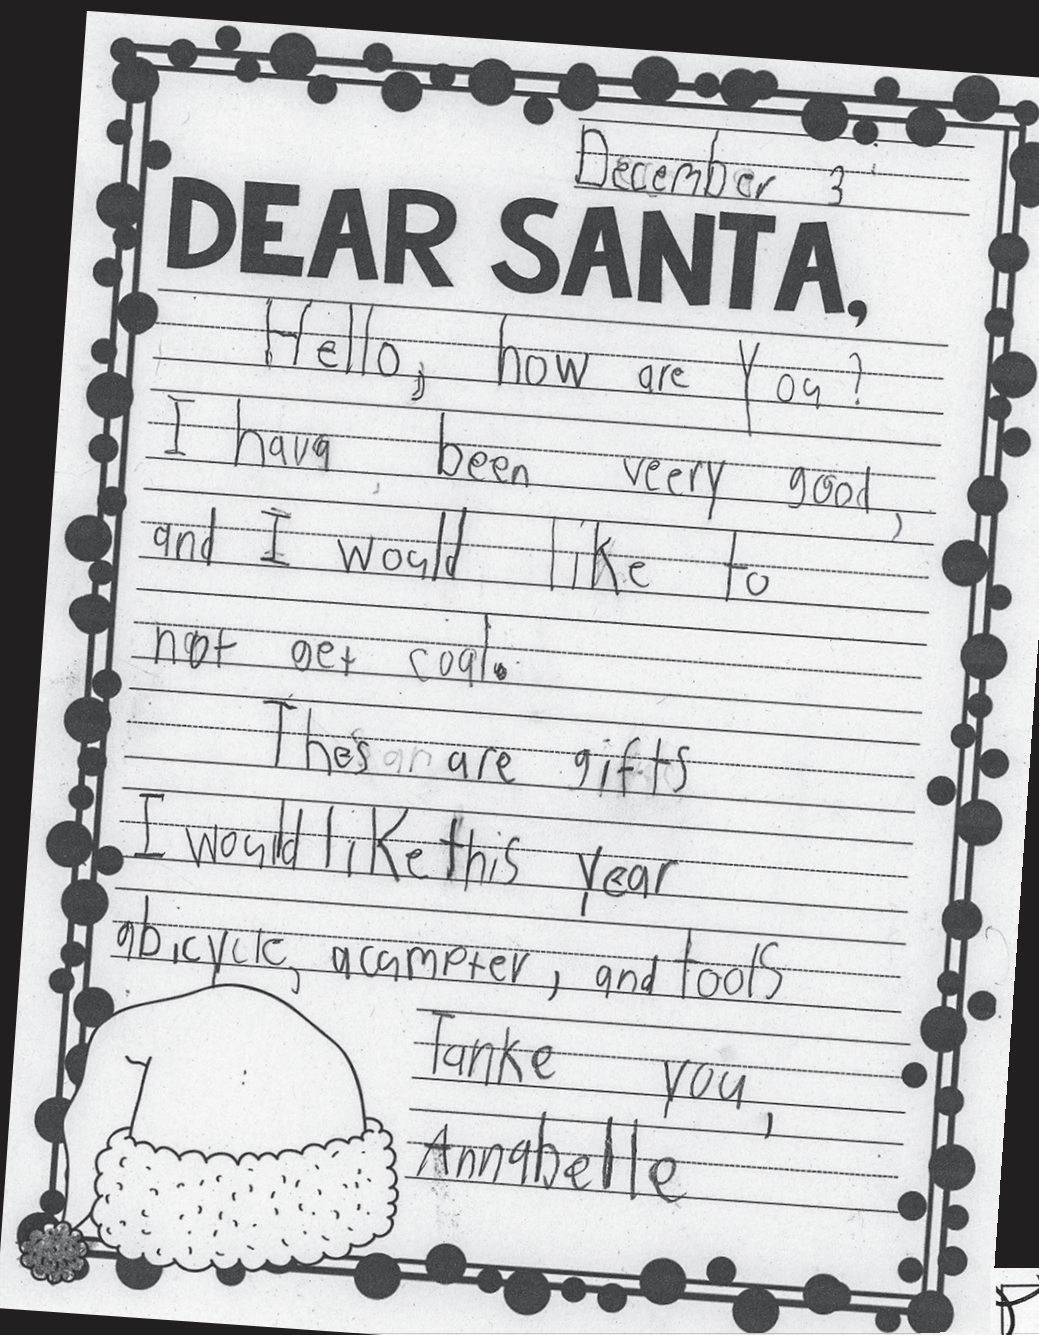 December 3
DEAR SANTA,
Hello, how are You?
I hava been veery good,
and I would like to
not get coal.
Thes are gifts
I would like this year
abicycle, acampter, and tools
Tanke you,
Annabelle